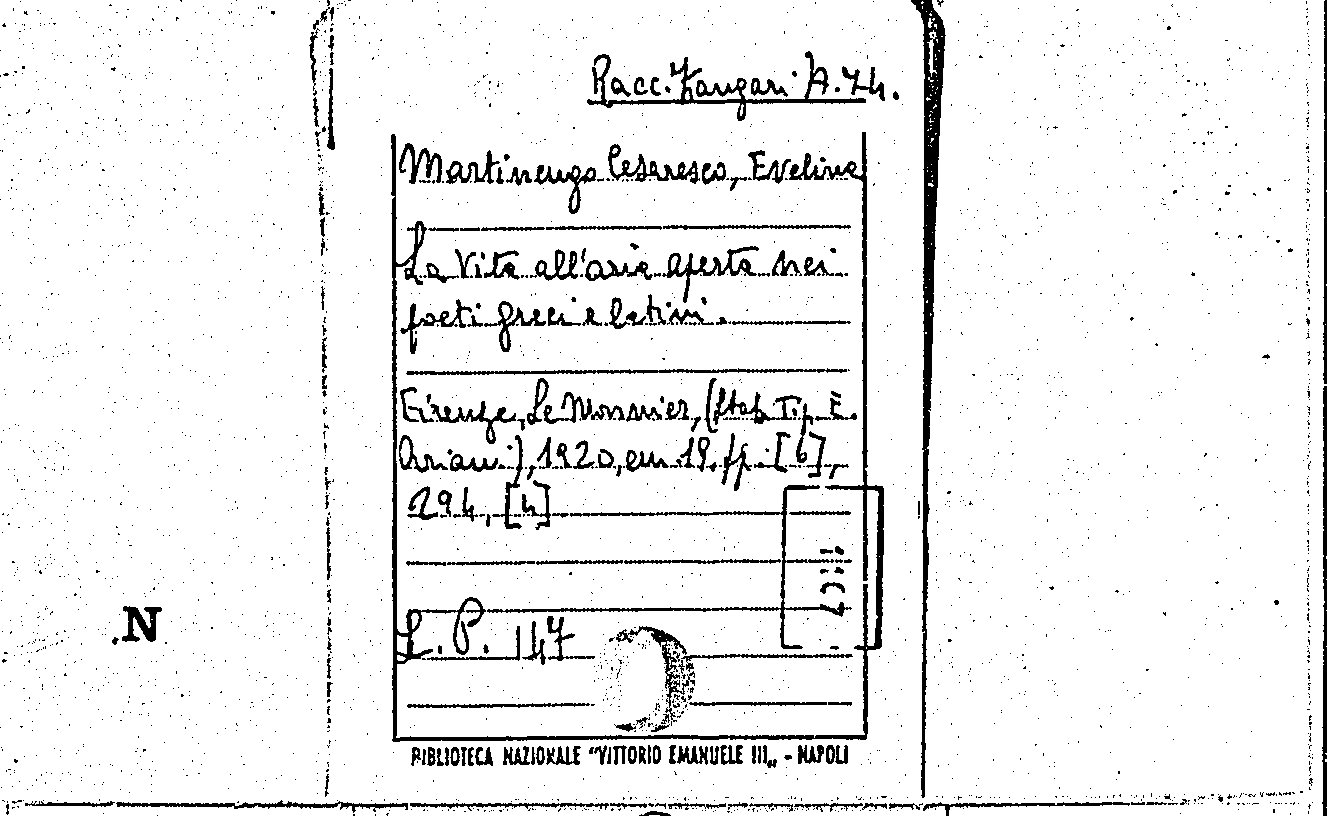 Racc. Zangari A. 74.
Martinengo Cesaresco, Eveline
La Vita all'aria aperta nei
poeti greci e latini.
Firenze, Le Monnier, (Stab. Tip. E.
Ariani), 1920, em 19. pp. [6],
294, [4]
L. P. 147
N
BIBLIOTECA NAZIONALE "VITTORIO EMANUELE III„ - NAPOLI